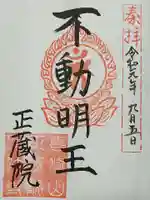 奉拝
令和元年 九月五日
不動明王
正蔵院